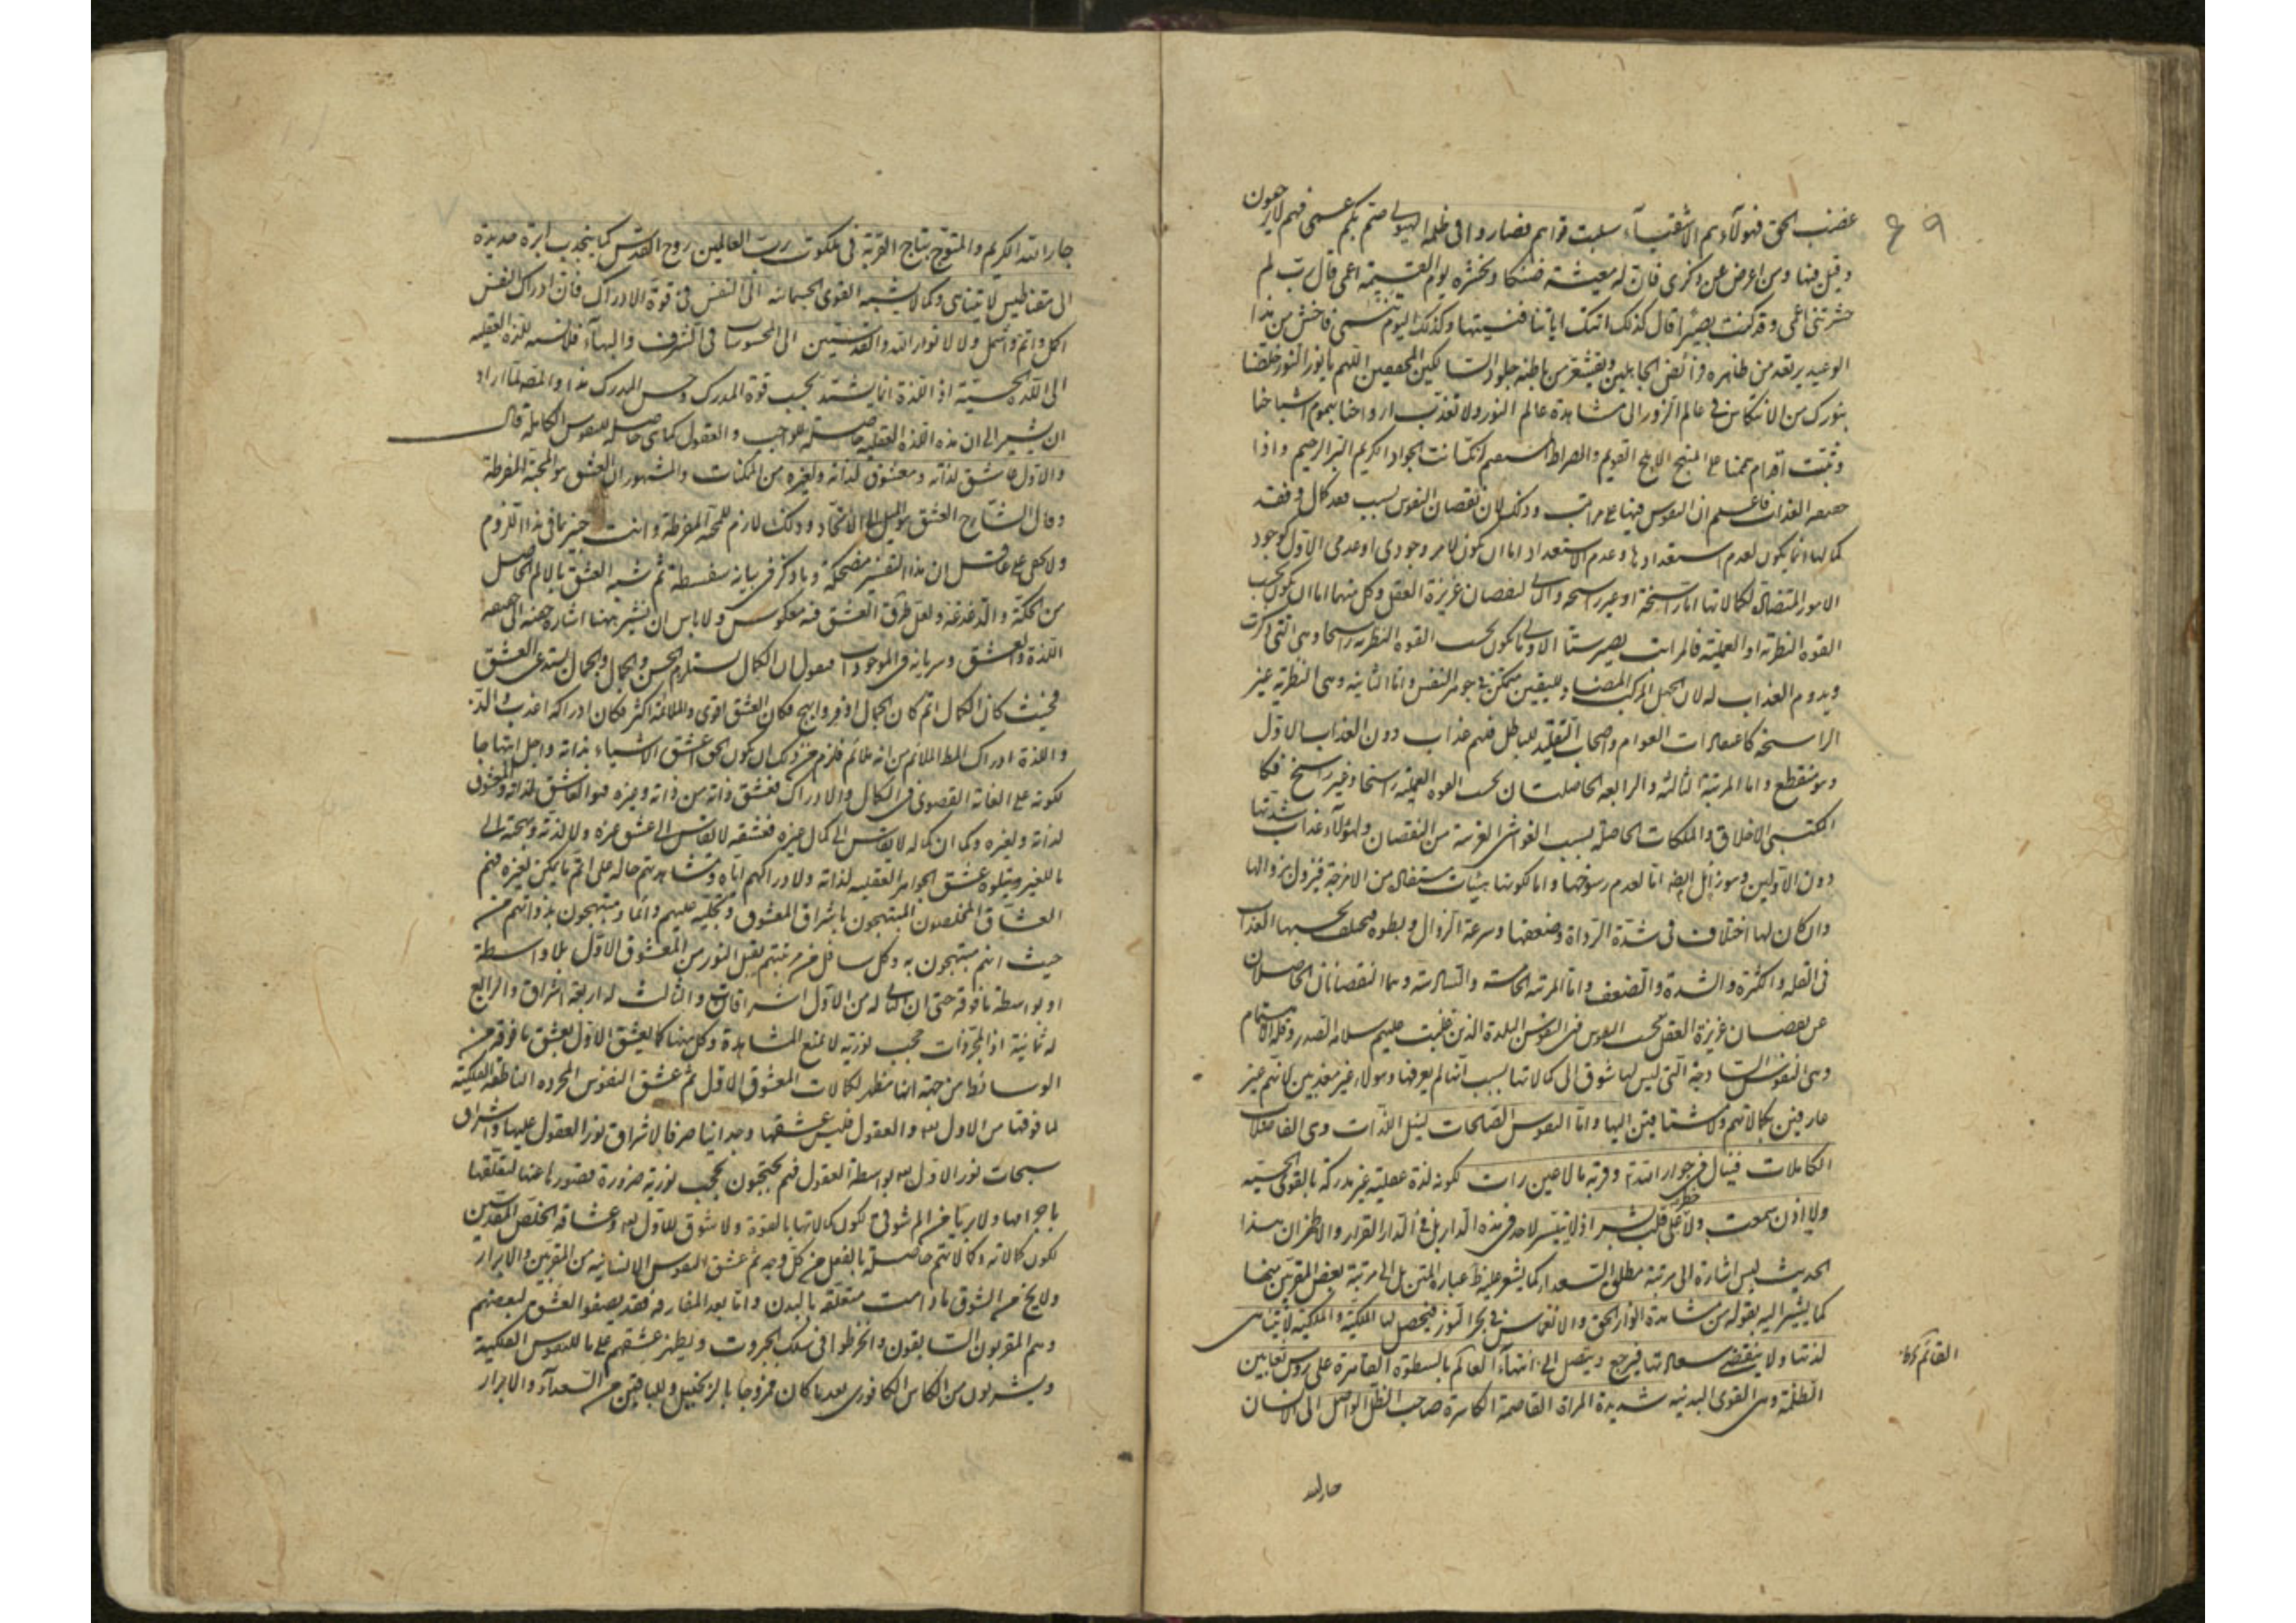 ٤٩
غضب الحق فهولاء هم الاشقياء سلبت قواهم فصاروا في ظلمة الهيولى صم بكم عمى فهم لا يرجعون
وقيل فيها ومن اعرض عن ذكرى فان له معيشة ضنكا ونحشره يوم القيمة اعمى قال رب لم
حشرتنى اعمى وقد كنت بصيرا قال كذلك اتتك اياتنا فنسيتها وكذلك اليوم تنسى فاخش من هذا
الوعيد يرتعد من ظاهره فرائض الجاهلين ويقشعر من باطنه جلود السالكين المحققين اللهم يا نور النور خلصنا
بنورك من الانتكاس في عالم الزور الى مشاهدة عالم النور ولا تعذب ارواحنا بهموم اشباحنا
وثبت اقدام هممنا على المنهج الابلج القويم والصراط المستقيم انك انت الجواد الكريم البر الرحيم واذا
العذاب فاعلم ان النفوس فيها على مراتب وذلك لان نقصان النفوس بسبب فقد كمال وفقد
كمالها انما يكون لعدم استعدادها وعدم الاستعداد اما ان يكون لامر وجودي او عدمى الاول كوجود
الامور المتضادة لكمالاتها اما راسخة او غير راسخة والثانى لنقصان غريزة العقل وكل منهما اما ان يكون بحسب
القوة النظرية او العملية فالمراتب يصير ستا الاولى ما يكون بحسب القوة النظرية راسخا وهى التى ذكرت
ويدوم العذاب له لان الجهل المركب المضاد لليقين متمكن في جوهر النفس واما الثانية وهى النظرية غير
الراسخة كاعتقادات العوام واصحاب التقليد للباطل فلهم عذاب دون العذاب الاول
وهو منقطع واما المرتبة الثالثة والرابعة الحاصلتان بحسب القوة العملية راسخا وغير راسخ فكا
الاخلاق والملكات الحاصلة بسبب الغواشى الغريبة من النقصان ولهولاء عذاب شدتها
دون الاولين وهو زائل ايضا اما لعدم رسوخها واما لكونها هيئات مستفادة من الامزجة فيزول بزوالها
وان كان لها اختلاف في شدة الرداة وضعفها وسرعة الزوال وبطوه فيختلف بحسبها العذاب
فى القلة والكثرة والشدة والضعف واما المرتبة الخامسة والسادسة وهما النقصانان الحاصلان
عن نقصان غريزة العقل بحسب القوتين فى النفوس البلدة الذين غلبت عليهم سلامة الصدر وقلة الاهتمام
وهى النفوس الساذجة التى ليس لها شوق الى كمالاتها بسبب انها لم يعرفها وهولاء غير معذبين لانهم غير
عارفين بكمالاتهم ولا مشتاقين اليها واما النفوس الصالحات لنيل اللذات وهى الفاضلات
الكاملات فينال في جوار الله وقربه ما لا عين رات لكونه لذة عقلية غير مدركة بالقوى الحسية
ولا اذن سمعت ولا خطر على قلب بشر اذ لا يتيسر لاحد في هذه الدار بل في الدار القرار والاظهر ان هذا
الحديث ليس اشارة الى مرتبة مطلق السعداء كما يشعر عليه ظ عبارة المتن بل الى مرتبة بعض المقربين منها
كما يشير اليه بقوله من مشاهدة انوار الحق والانغماس في بحر النور فيحصل لها الملكية والملكية لا يتناهى
لذتها ولا ينقضى سعادتها فيرجع ويتصل الى ابنها القائم بالسطوة القاهرة على روس ثعابين
الظلمة وهى القوى البدنية شديدة المراة القاصمة الكاسرة صاحب الظل الواصل الى الانسان
جار الله
جار الله الكريم والمتوج بتاج القربة في ملكوت رب العالمين روح القدس كما ينجذب ابرة حديدة
الى مقناطيس لا يتناهى وكما لا يشبه القوى الجسمانية الى النفس في قوة الادراك فان ادراك النفس
اكمل واتم واشمل ولا لانوار الله والقديسين الى المحسوسات في الشرف والبهاء فلا نسبة للذة العقلية
الى اللذة الحسية اذ اللذة انما يشتد بحسب قوة المدرك وحسن المدرك هذا والمص لما اراد
ان يشير الى ان هذه اللذة العقلية حاصلة للواجب والعقول كما هى حاصلة للنفوس الكاملة قال
والاول عاشق لذاته ومعشوق لذاته ولغيره من الممكنات والمشهور ان العشق هو المحبة المفرطة
وقال الشارح العشق هو الميل الى الاتحاد وذلك لازم للمحبة المفرطة وانت خبير بما فى هذا اللزوم
ولا يخفى على عاقل ان هذا التفسير مضحكة وما ذكر في بيانه سفسطة ثم شبه العشق بالالم الحاصل
من الحكة والدغدغة ولعل طرق العشق فيه معكوس ولا باس ان نشير ههنا اشارة خفية الى
اللذة والعشق وسريانه في الموجودات فنقول ان الكمال يستلزم الحسن والجمال والجمال يستدعى العشق
فحيث كان الكمال اتم كان الجمال اوفر وابهج فكان العشق اقوى والملائمة اكثر فكان ادراكه اعذب والذ
واللذة ادراك الملائم من انه ملائم فلزم من ذلك ان يكون الحق اعشق الاشياء بذاته واجل ابتهاجا
لكونه على الغاية القصوى فى الكمال والادراك فعشق ذاته من ذاته وغيره فهو العاشق لذاته والمعشوق
لذاته ولغيره وكما ان كماله لا يقاس الى كمال غيره فعشقه لا يقاس الى عشق غيره ولا لذته وبهجته الى
ما للغير ويتلوه عشق الجواهر العقلية لذاته ولادراكهم اياه ومشاهدتهم جماله على اتم ما يمكن لغيره فهم
العشاق المخلصون المبتهجون باشراق المعشوق وتجليه عليهم دائما ومبتهجون بذواتهم من
حيث انهم مبتهجون به وكل سافل من مرتبتهم يقبل النور من المعشوق الاول بلا واسطة
او بواسطة ما فوقه حتى ان الثانى له من الاول اشراقان والثالث له اربعة اشراق والرابع
له ثمانية اذ المجردات حجب نورية لا تمنع المشاهدة وكل منها كما يعشق الاول يعشق ما فوقه من
الوسائط من جهة انها مظهر لكمالات المعشوق الاول ثم عشق النفوس المجردة الناطقة الفلكية
لما فوقها من الاول والعقول فليس عشقها وجدانيا صرفا لاشراق نور العقول عليها واشراق
سبحات نور الاول بواسطة العقول فهم محتجبون بحجب نورية ضرورة قصورها عنها لتعلقها
باجرامها ولا يريا من الم شوق لكون كمالاتها بالقوة ولا شوق للاول وعشاقه الخلص المقدسين
لكون كمالاته وكمالاتهم حاصلة بالفعل من كل وجه ثم عشق النفوس الانسانية من المقربين والابرار
ولا يخ من الشوق ما دامت متعلقة بالبدن واما بعد المفارقة فقد يصفو العشق لبعضهم
وهم المقربون السابقون وانخرطوا فى سلك الجبروت ويظهر عشقهم على ما للنفوس الفلكية
ويشربون من الكاس الكافورى بعد ما كان ممزوجا بالزنجبيل وللباقين من السعداء والابرار